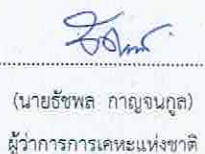 (นายธัชพล กาญจนกูล)
ผู้ว่าการการเคหะแห่งชาติ